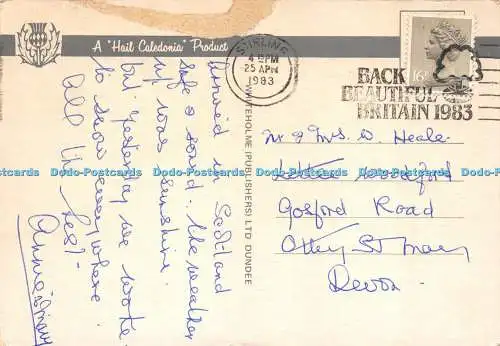 A "Hail Caledonia" Product
STIRLING
4 PM
25 APR
1983
BACK
BEAUTIFUL
BRITAIN 1983
16
WHITEHOLME (PUBLISHERS) LTD DUNDEE
Arrived in Scotland
safe & sound. The weather
up was sunshine
but yesterday we woke
to snow everywhere
All the
Best
Annie & Mary
Mr & Mrs W. Heale
Gosford Road
Ottery St Mary
Devon.
Dodo-Postcards Dodo-Postcards Dodo-Postcards Dodo-Postcards